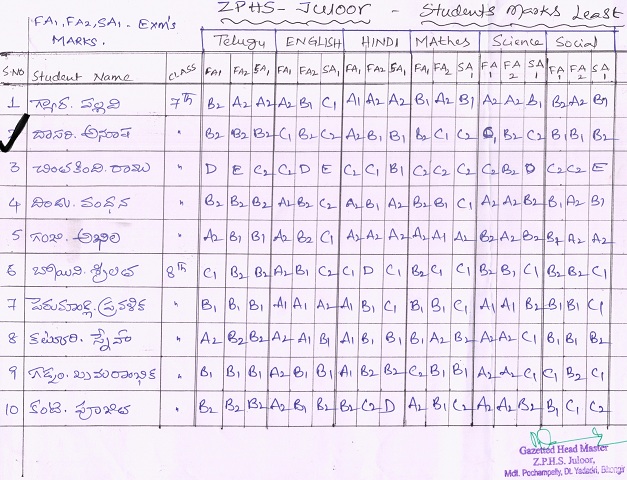 ZPHS- Juloor - Students Marks Least
FA1, FA2, SA1 - Exm's
MARKS.
Telugu ENGLISH HINDI Mathes Science Social
S.NO Student Name CLASS FA1 FA2 SA1 FA1 FA2 SA1 FA1 FA2 SA1 FA1 FA2 SA1 FA1 FA2 SA1 FA1 FA2 SA1
1 గ్యార. పల్లవి 7th B2 A2 A2 A2 B1 C1 A1 A2 A2 B1 A2 B1 A2 A2 B1 B2 A2 B1
2 దాసరి. అనూష " B2 B2 B2 C1 B2 C2 A2 B1 B1 B2 C1 C2 C1 B2 C2 B1 B1 B2
3 చింతకింది. రాము " D E C2 C2 D E C2 C1 B1 C2 C2 C2 C2 B2 D C2 C2 E
4 దిండు. వందన " B2 B2 B2 A2 B2 C2 A2 B1 A2 B2 B1 C1 A2 A2 B2 B1 A2 B1
5 గంజి. అఖిల " A2 B1 B1 A2 B2 C1 A2 A2 A2 A2 A1 A2 B2 A2 B2 B2 A2 A2
6 బోయిని. శ్రీలత 8th C1 B2 B2 A2 B1 C2 C1 D C1 B2 C1 C1 B2 B1 C1 B2 B2 C1
7 పెరుమాండ్ల. ప్రవళిక " B1 B1 B1 A1 A1 A2 A1 B1 C1 B1 B1 C1 A1 A1 B2 B1 B1 C1
8 కట్కూరి. స్నేహ " A2 B2 B2 A2 A1 B1 A1 B1 B1 B1 A2 B2 A2 A2 C1 B1 B1 B2
9 గడ్డం. కుమరాంభిక " B1 B1 B1 A2 B1 B1 A1 B2 B2 C2 B1 B1 A2 A2 C1 C1 B2 C1
10 కంటె. పూజిత " B2 B2 B2 A2 B1 B2 B2 C2 D A2 B1 C2 A2 A2 B2 B1 C1 C2
Gazetted Head Master
Z.P.H.S. Juloor,
Mdl. Pochampally, Dt. Yadadri, Bhongir